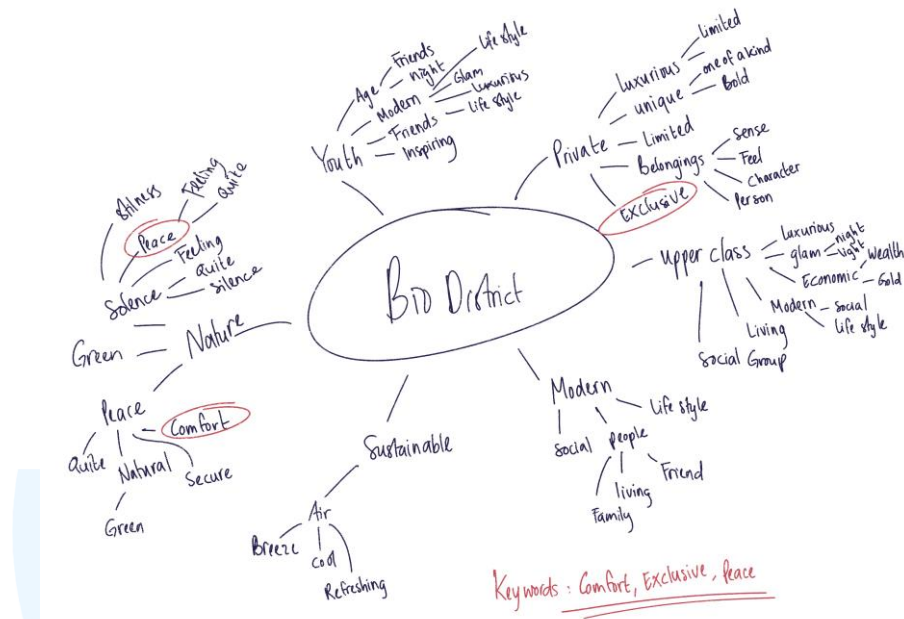 Bio District
Youth
Age
Friends
night
Modern
Life style
Glam
Luxurious
Friends
Life style
Inspiring
Private
Luxurious
Limited
unique
one of a kind
Bold
Limited
Belongings
Sense
Feel
Character
Person
Exclusive
upper class
Luxurious
glam
night
light
Economic
Wealth
Gold
Modern
Social
Life style
Living
Social Group
Modern
Life style
People
Friend
living
Family
Social
Sustainable
Air
Breeze
Cool
Refreshing
Nature
Solence
Stilness
Peace
Feeling
Quite
Feeling
Quite
Silence
Green
Peace
Comfort
Secure
Natural
Green
Quite
Keywords : Comfort, Exclusive, Peace